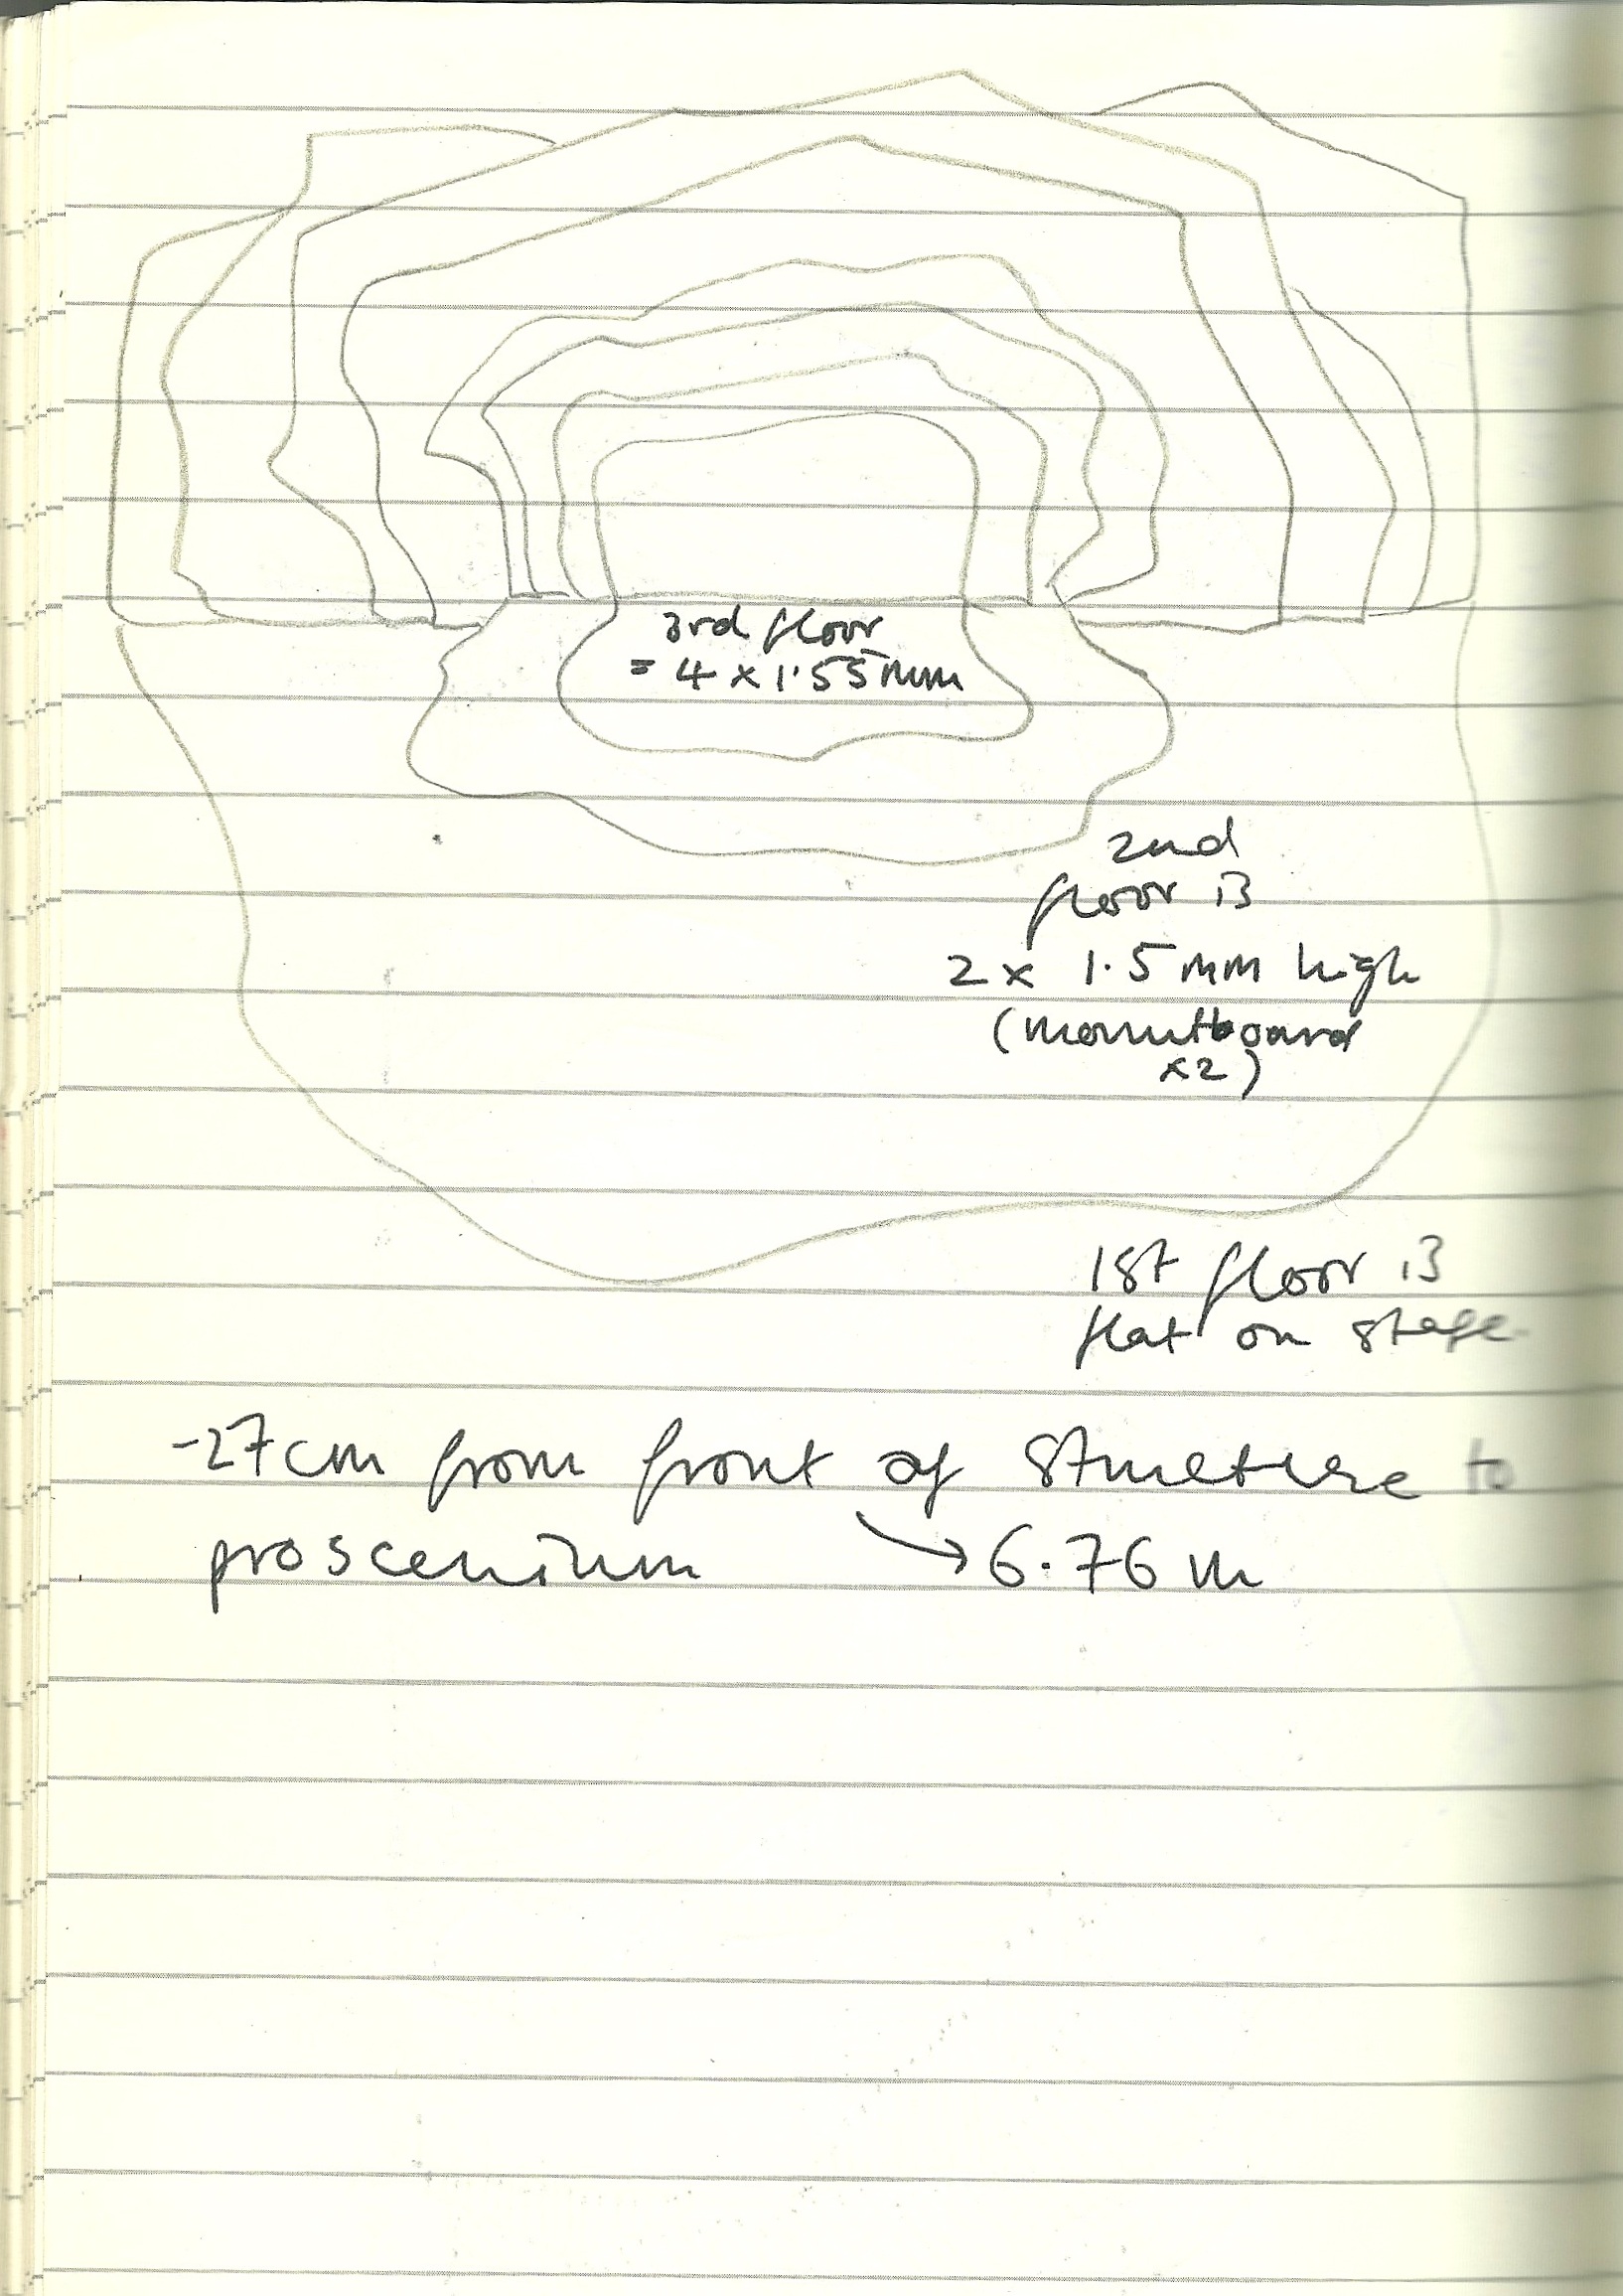 3rd floor
= 4 x 1.55mm
2nd
floor is
2 x 1.5mm high
(mountboard
x2)
1st floor is
flat on stage
-27cm from front of structure to
proscenium → 6.76m